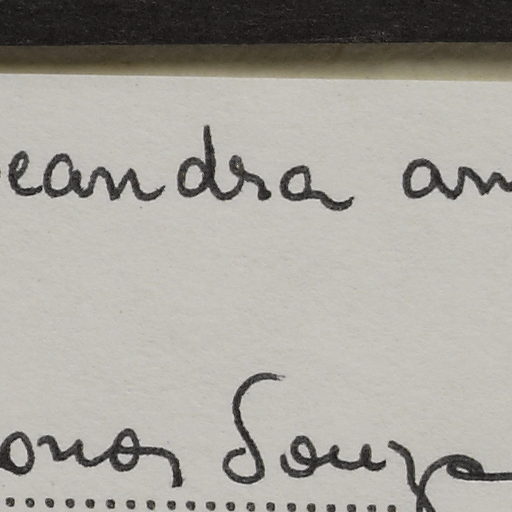 eandra an
Souza